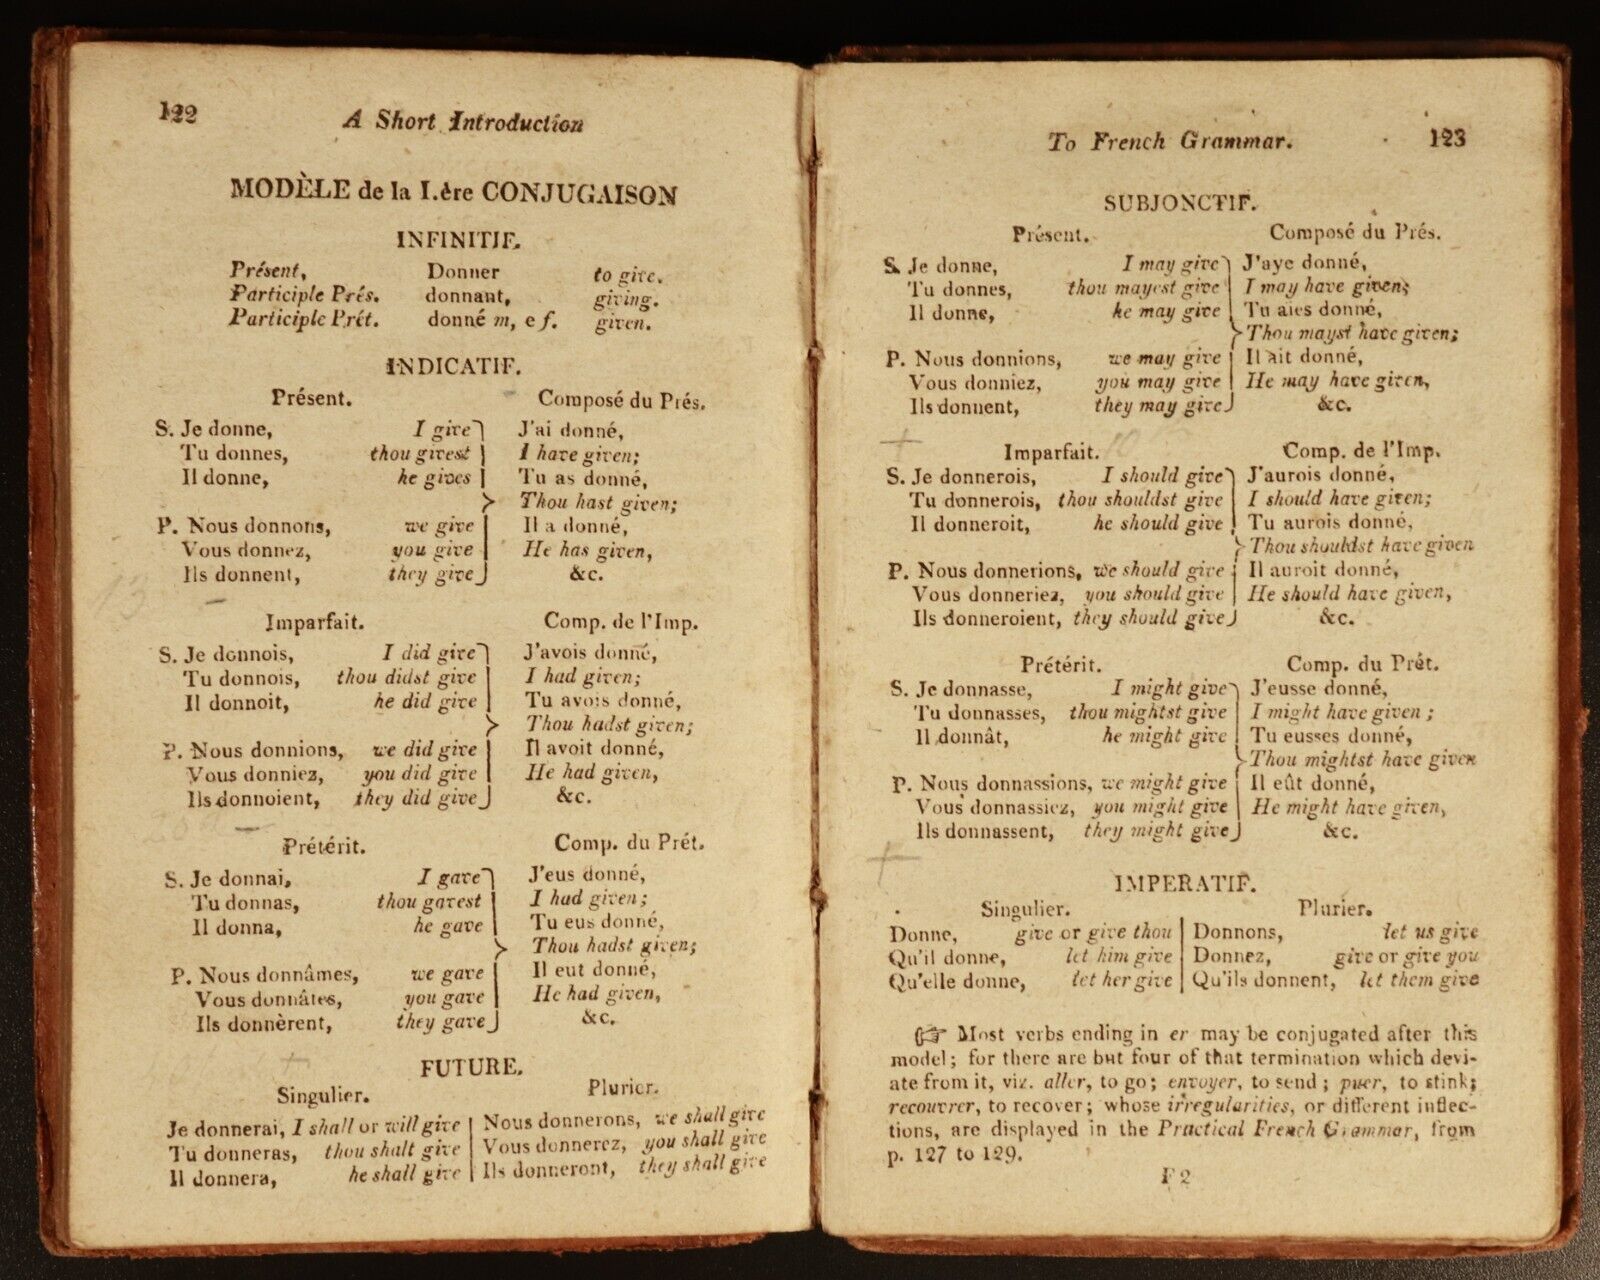 122
A Short Introduction
MODÈLE de la I.ère CONJUGAISON
INFINITIF.
Présent, Donner to give.
Participle Prés. donnant, giving.
Participle Prét. donné m, e f. given.
INDICATIF.
Présent. Composé du Prés.
S. Je donne, I give J'ai donné,
Tu donnes, thou givest I have given;
Il donne, he gives Tu as donné,
Thou hast given;
P. Nous donnons, we give Il a donné,
Vous donnez, you give He has given,
Ils donnent, they give &c.
Imparfait. Comp. de l'Imp.
S. Je donnois, I did give J'avois donné,
Tu donnois, thou didst give I had given;
Il donnoit, he did give Tu avois donné,
Thou hadst given;
P. Nous donnions, we did give Il avoit donné,
Vous donniez, you did give He had given,
Ils donnoient, they did give &c.
Prétérit. Comp. du Prét.
S. Je donnai, I gave J'eus donné,
Tu donnas, thou gavest I had given;
Il donna, he gave Tu eus donné,
Thou hadst given;
P. Nous donnâmes, we gave Il eut donné,
Vous donnâtes, you gave He had given,
Ils donnèrent, they gave &c.
FUTURE.
Singulier. Plurier.
Je donnerai, I shall or will give Nous donnerons, we shall give
Tu donneras, thou shalt give Vous donnerez, you shall give
Il donnera, he shall give Ils donneront, they shall give
To French Grammar. 123
SUBJONCTIF.
Présent. Composé du Prés.
S. Je donne, I may give J'aye donné,
Tu donnes, thou mayest give I may have given;
Il donne, he may give Tu aies donné,
Thou mayst have given;
P. Nous donnions, we may give Il ait donné,
Vous donniez, you may give He may have given,
Ils donnent, they may give &c.
Imparfait. Comp. de l'Imp.
S. Je donnerois, I should give J'aurois donné,
Tu donnerois, thou shouldst give I should have given;
Il donneroit, he should give Tu aurois donné,
Thou shouldst have given
P. Nous donnerions, we should give Il auroit donné,
Vous donneriez, you should give He should have given,
Ils donneroient, they should give &c.
Prétérit. Comp. du Prét.
S. Je donnasse, I might give J'eusse donné,
Tu donnasses, thou mightst give I might have given;
Il donnât, he might give Tu eusses donné,
Thou mightst have given
P. Nous donnassions, we might give Il eût donné,
Vous donnassiez, you might give He might have given,
Ils donnassent, they might give &c.
IMPERATIF.
Singulier. Plurier.
Donne, give or give thou Donnons, let us give
Qu'il donne, let him give Donnez, give or give you
Qu'elle donne, let her give Qu'ils donnent, let them give
☞ Most verbs ending in er may be conjugated after this
model; for there are but four of that termination which devi-
ate from it, viz. aller, to go; envoyer, to send; puer, to stink;
recouvrer, to recover; whose irregularities, or different inflec-
tions, are displayed in the Practical French Grammar, from
p. 127 to 129.
F 2